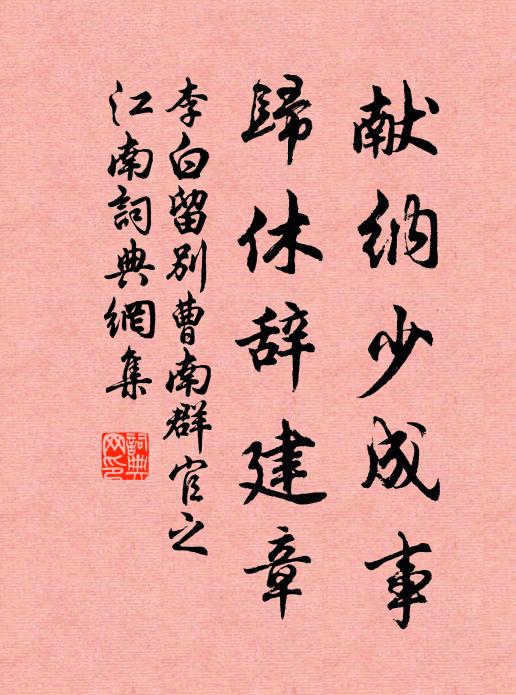 献纳少成事
歸休辞建章
李白留别曹南群官之
江南詞典網集
詞典
网印